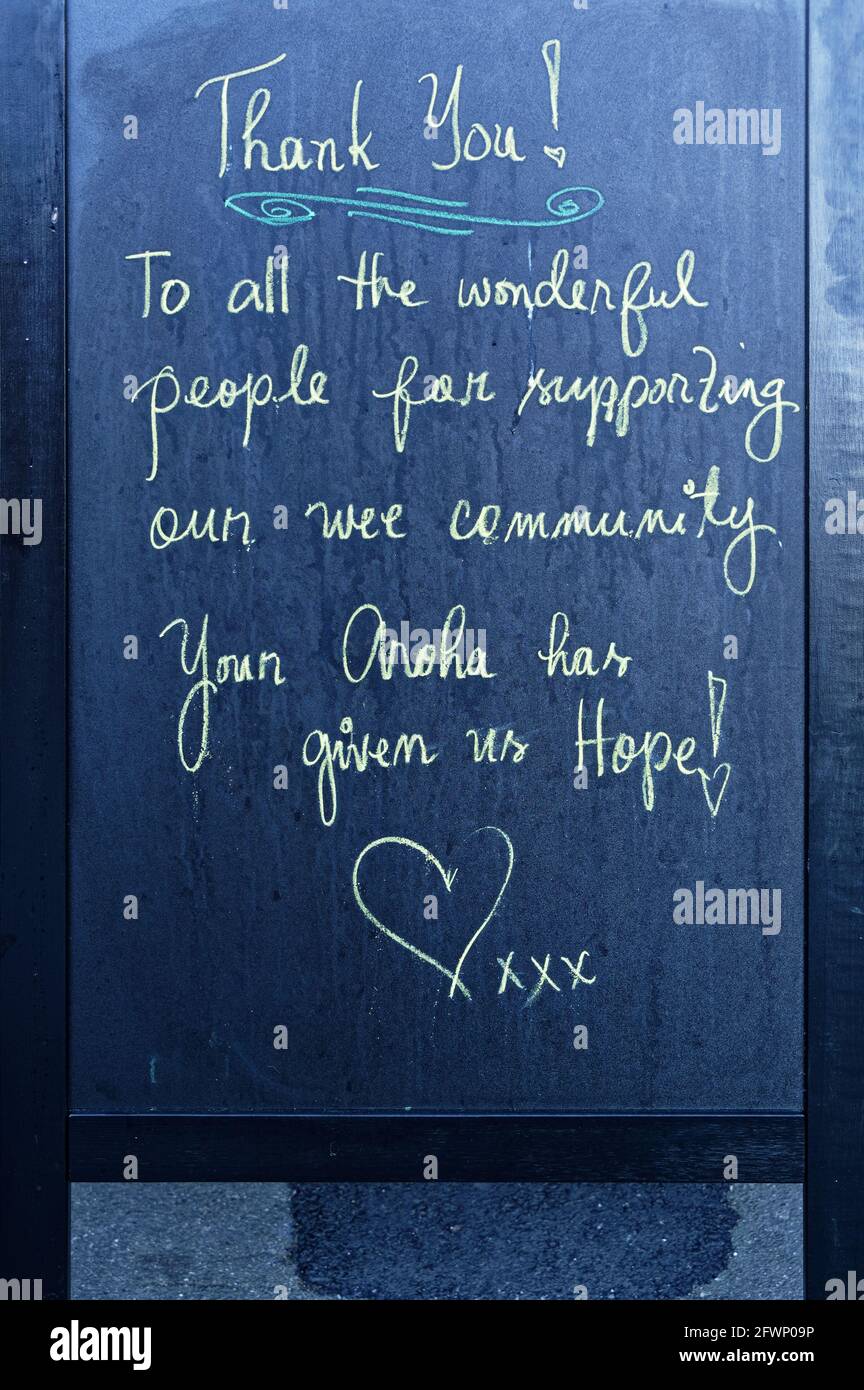 Thank You!
To all the wonderful
people for supporting
our wee community
Your Aroha has
given us Hope!
xxx
alamy
alamy
Image ID: 2FWP09P
www.alamy.com